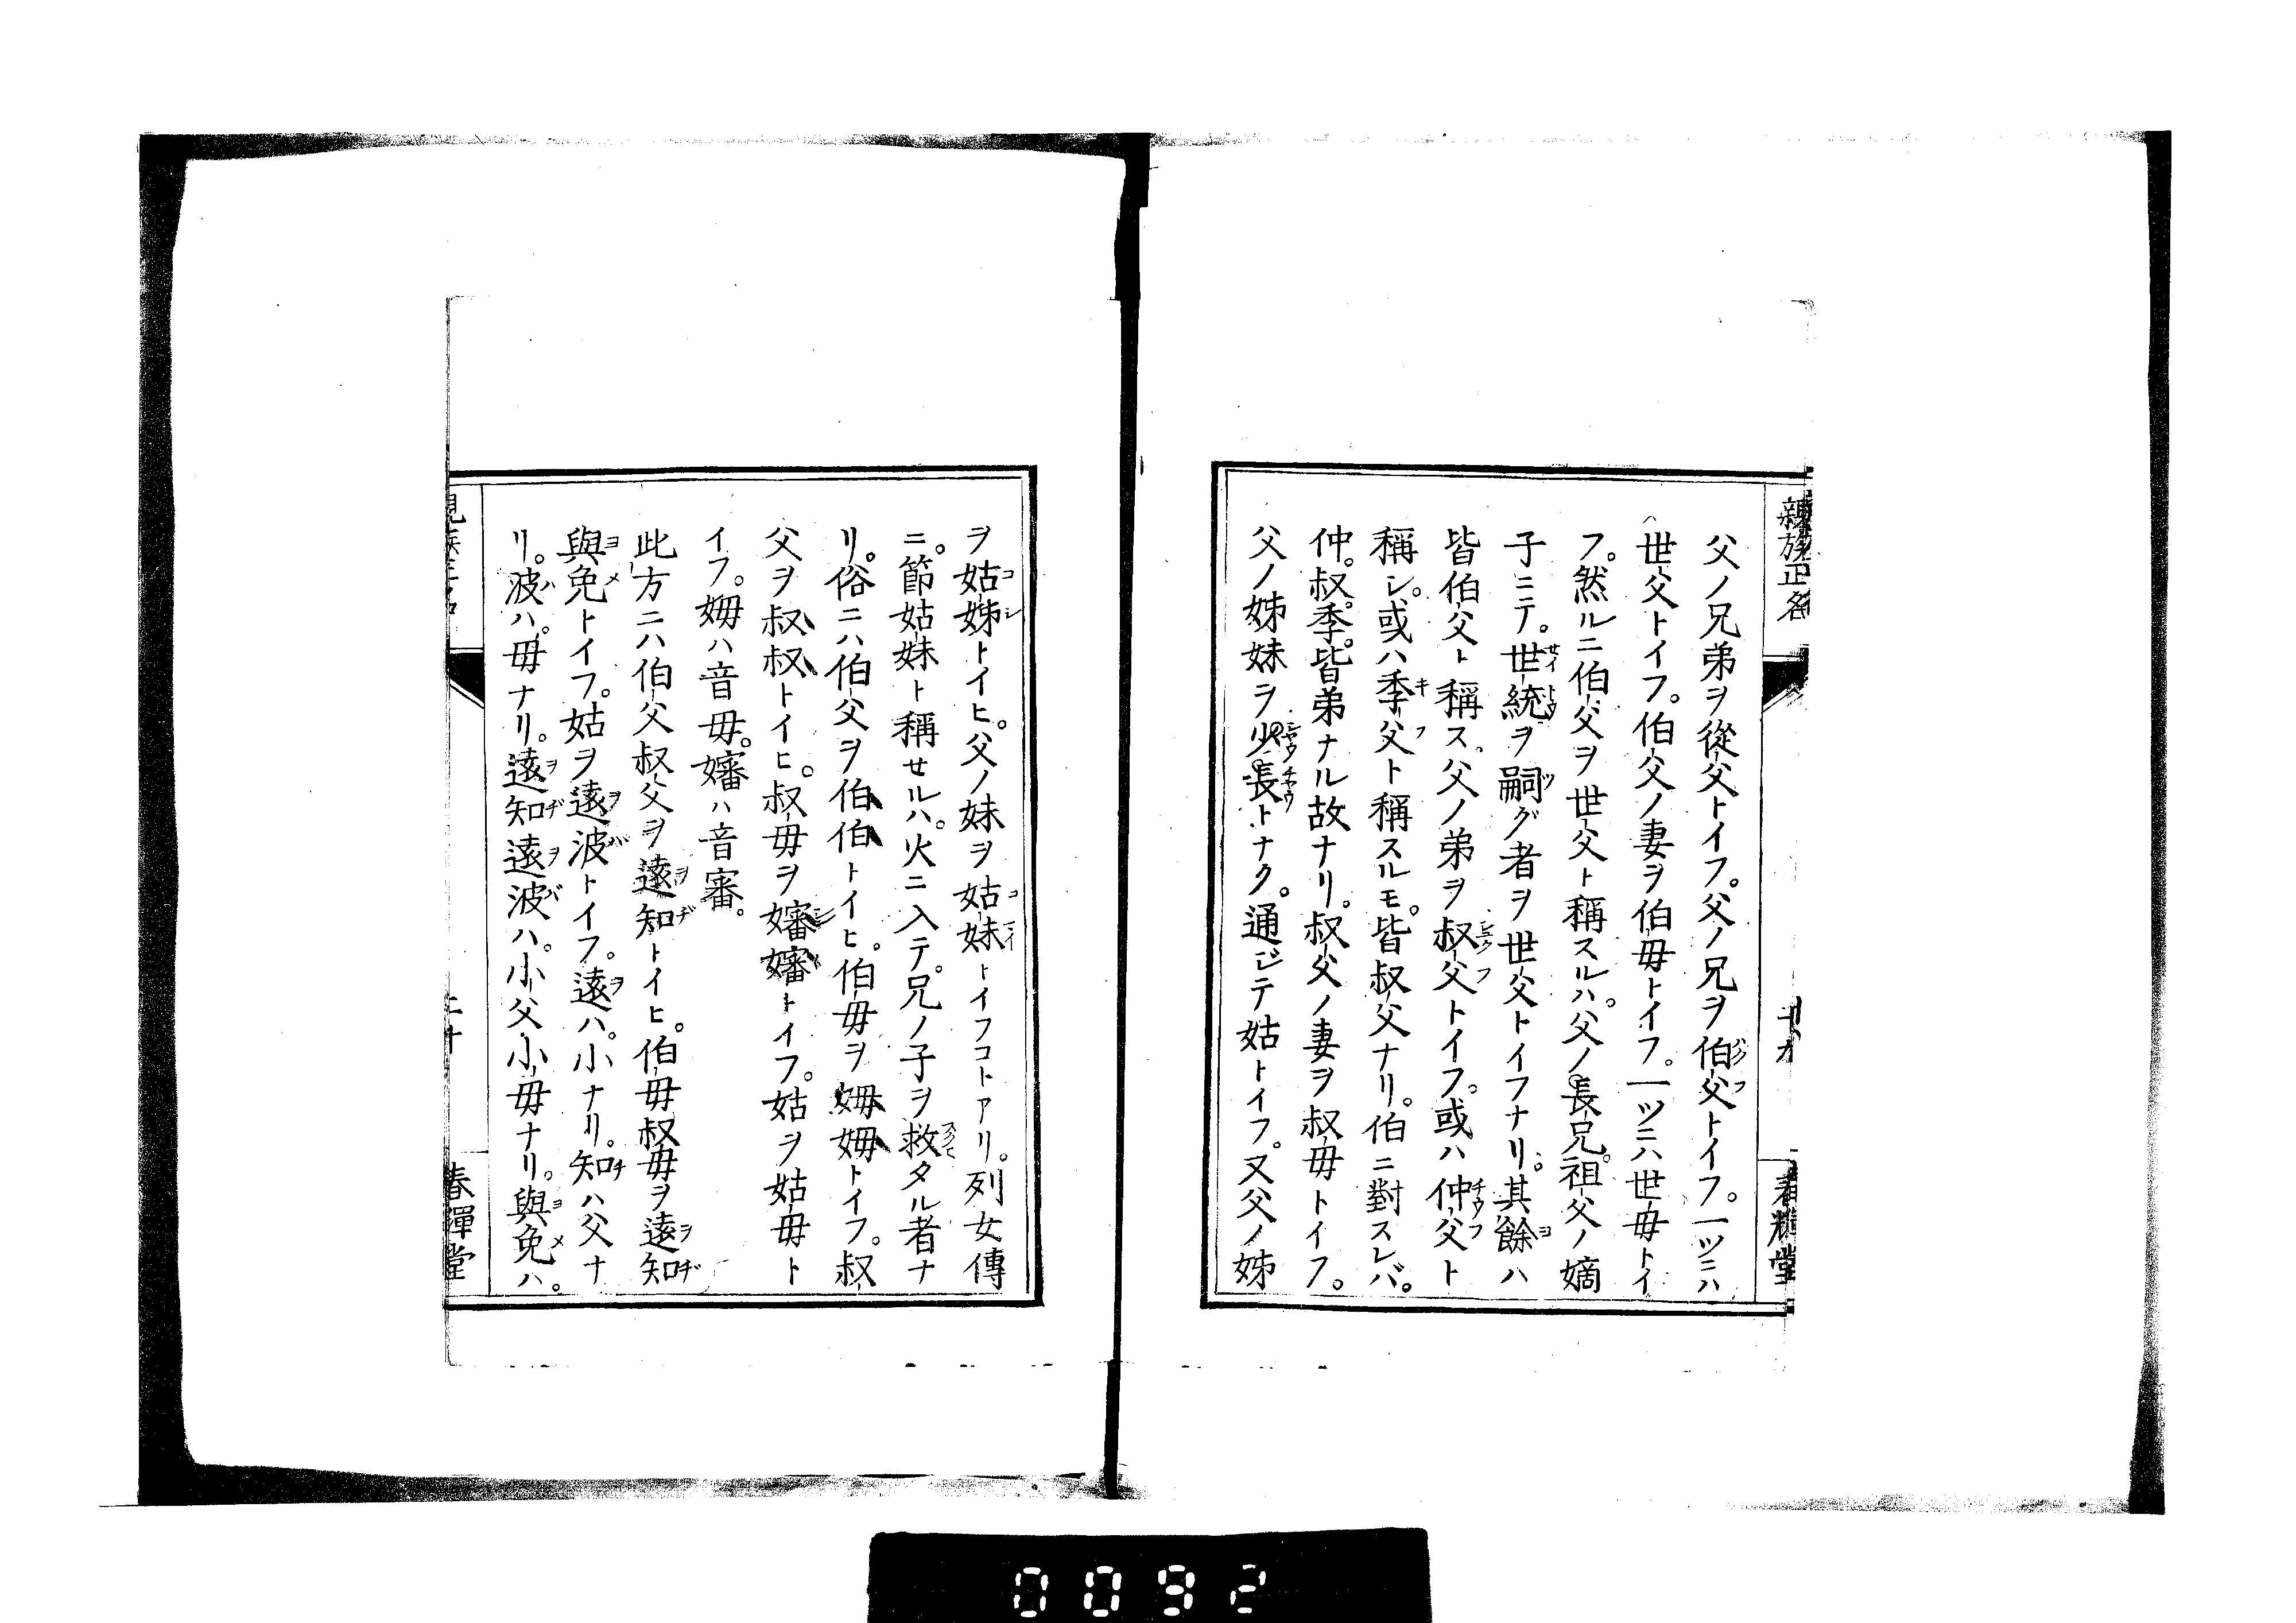 親族正名
十九
春耀堂
父ノ兄弟ヲ從父トイフ。父ノ兄ヲ伯父トイフ。一ツニハ
世父トイフ。伯父ノ妻ヲ伯母トイフ。一ツニハ世母トイ
フ。然ルニ伯父ヲ世父ト稱スルハ。父ノ長兄。祖父ノ嫡
子ニテ。世統ヲ嗣グ者ヲ世父トイフナリ。其餘ハ
皆伯父ト稱ス。父ノ弟ヲ叔父トイフ。或ハ仲父ト
稱シ。或ハ季父ト稱スルモ。皆叔父ナリ。伯ニ對スレバ。
仲。叔。季。皆弟ナル故ナリ。叔父ノ妻ヲ叔母トイフ。
父ノ姊妹ヲ少長トナク。通ジテ姑トイフ。又父ノ姊
ヲ姑姊トイヒ。父ノ妹ヲ姑妹トイフコトアリ。列女傳
ニ。節姑妹ト稱セルハ。火ニ入テ。兄ノ子ヲ救タル者ナ
リ。俗ニハ伯父ヲ伯伯トイヒ。伯母ヲ姆姆トイフ。叔
父ヲ叔叔トイヒ。叔母ヲ嬸嬸トイフ。姑ヲ姑母ト
イフ。姆ハ音母。嬸ハ音審。
此方ニハ伯父叔父ヲ遠知トイヒ。伯母叔母ヲ遠知
與免トイフ。姑ヲ遠波トイフ。遠ハ。小ナリ。知ハ父ナ
リ。波ハ。母ナリ。遠知遠波ハ。小父小母ナリ。與免ハ。
親族正名
二十
春耀堂
0092